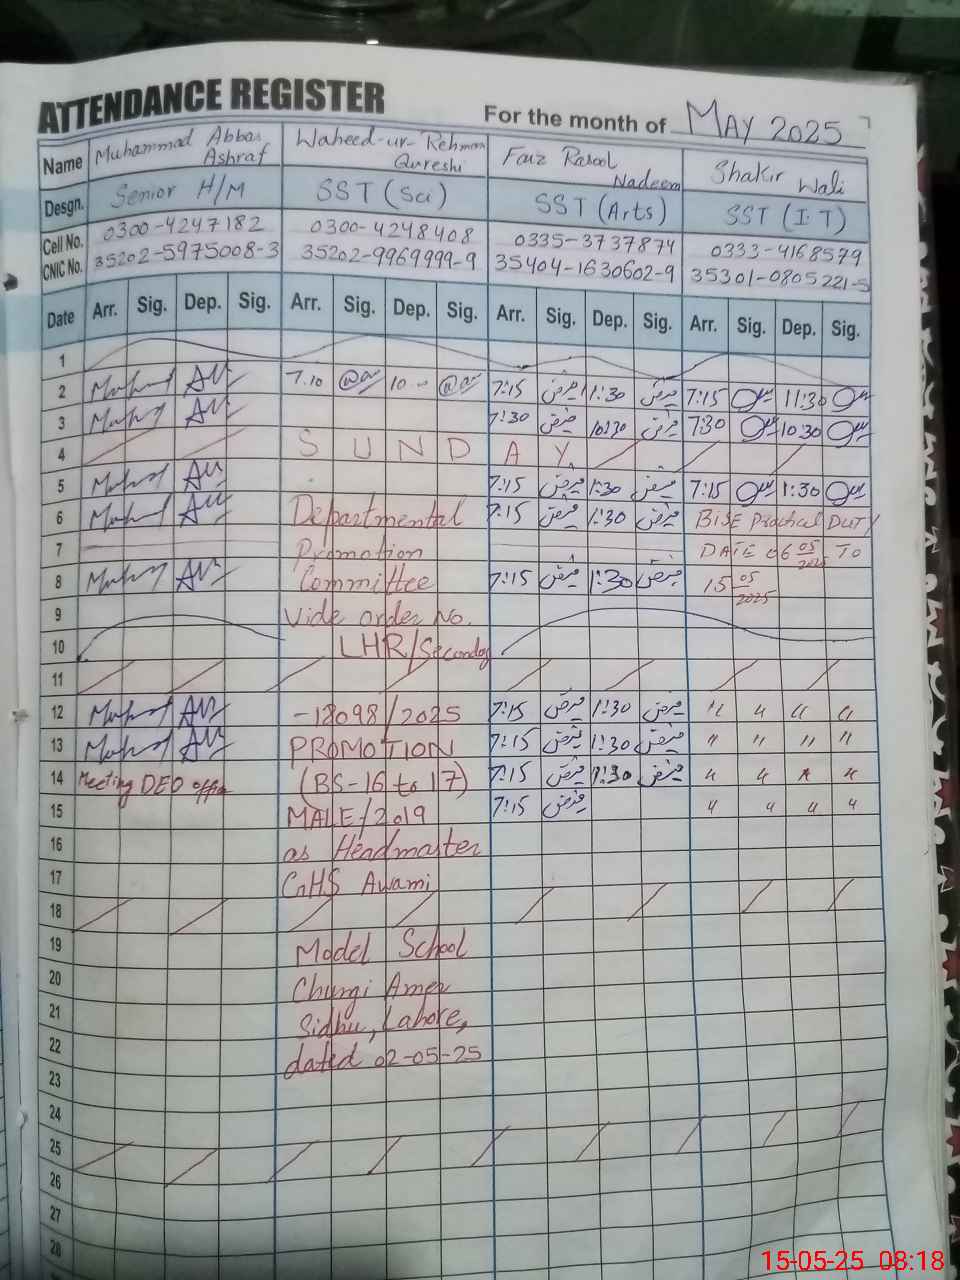 ATTENDANCE REGISTER For the month of MAY 2025
Name Muhammad Abbas Ashraf Waheed-ur-Rehman Qureshi Faiz Rasool Nadeem Shakir Wali
Desgn. Senior H/M SST (Sci) SST (Arts) SST (I.T)
Cell No. 0300-4247182 0300-4248408 0335-3737874 0333-4168579
CNIC No. 35202-5975008-3 35202-9969999-9 35404-1630602-9 35301-0805221-5
Date Arr. Sig. Dep. Sig. Arr. Sig. Dep. Sig. Arr. Sig. Dep. Sig. Arr. Sig. Dep. Sig.
1
2 7.10 7:15 11:30 7:15 11:30
3 7:30 10:30 7:30 10:30
4 S U N D A Y
5 7:15 1:30 7:15 1:30
6 Departmental 7:15 1:30 BISE Practical DUTY
7 Promotion DATE 06 05 2025 TO
8 Committee 7:15 1:30 15 05 2025
9 Vide order No.
10 LHR/Secondary
11
12 -18098/2025 7:15 1:30 " " " "
13 PROMOTION 7:15 1:30 " " " "
14 Meeting DEO office (BS-16 to 17) 7:15 1:30 " " " "
15 MALE/2019 7:15 " " " "
16 as Headmaster
17 GHS Awami
18
19 Model School
20 Chungi Amer
21 Sidhu, Lahore,
22 dated 02-05-25
23
24
25
26
27
28
15-05-25 08:18